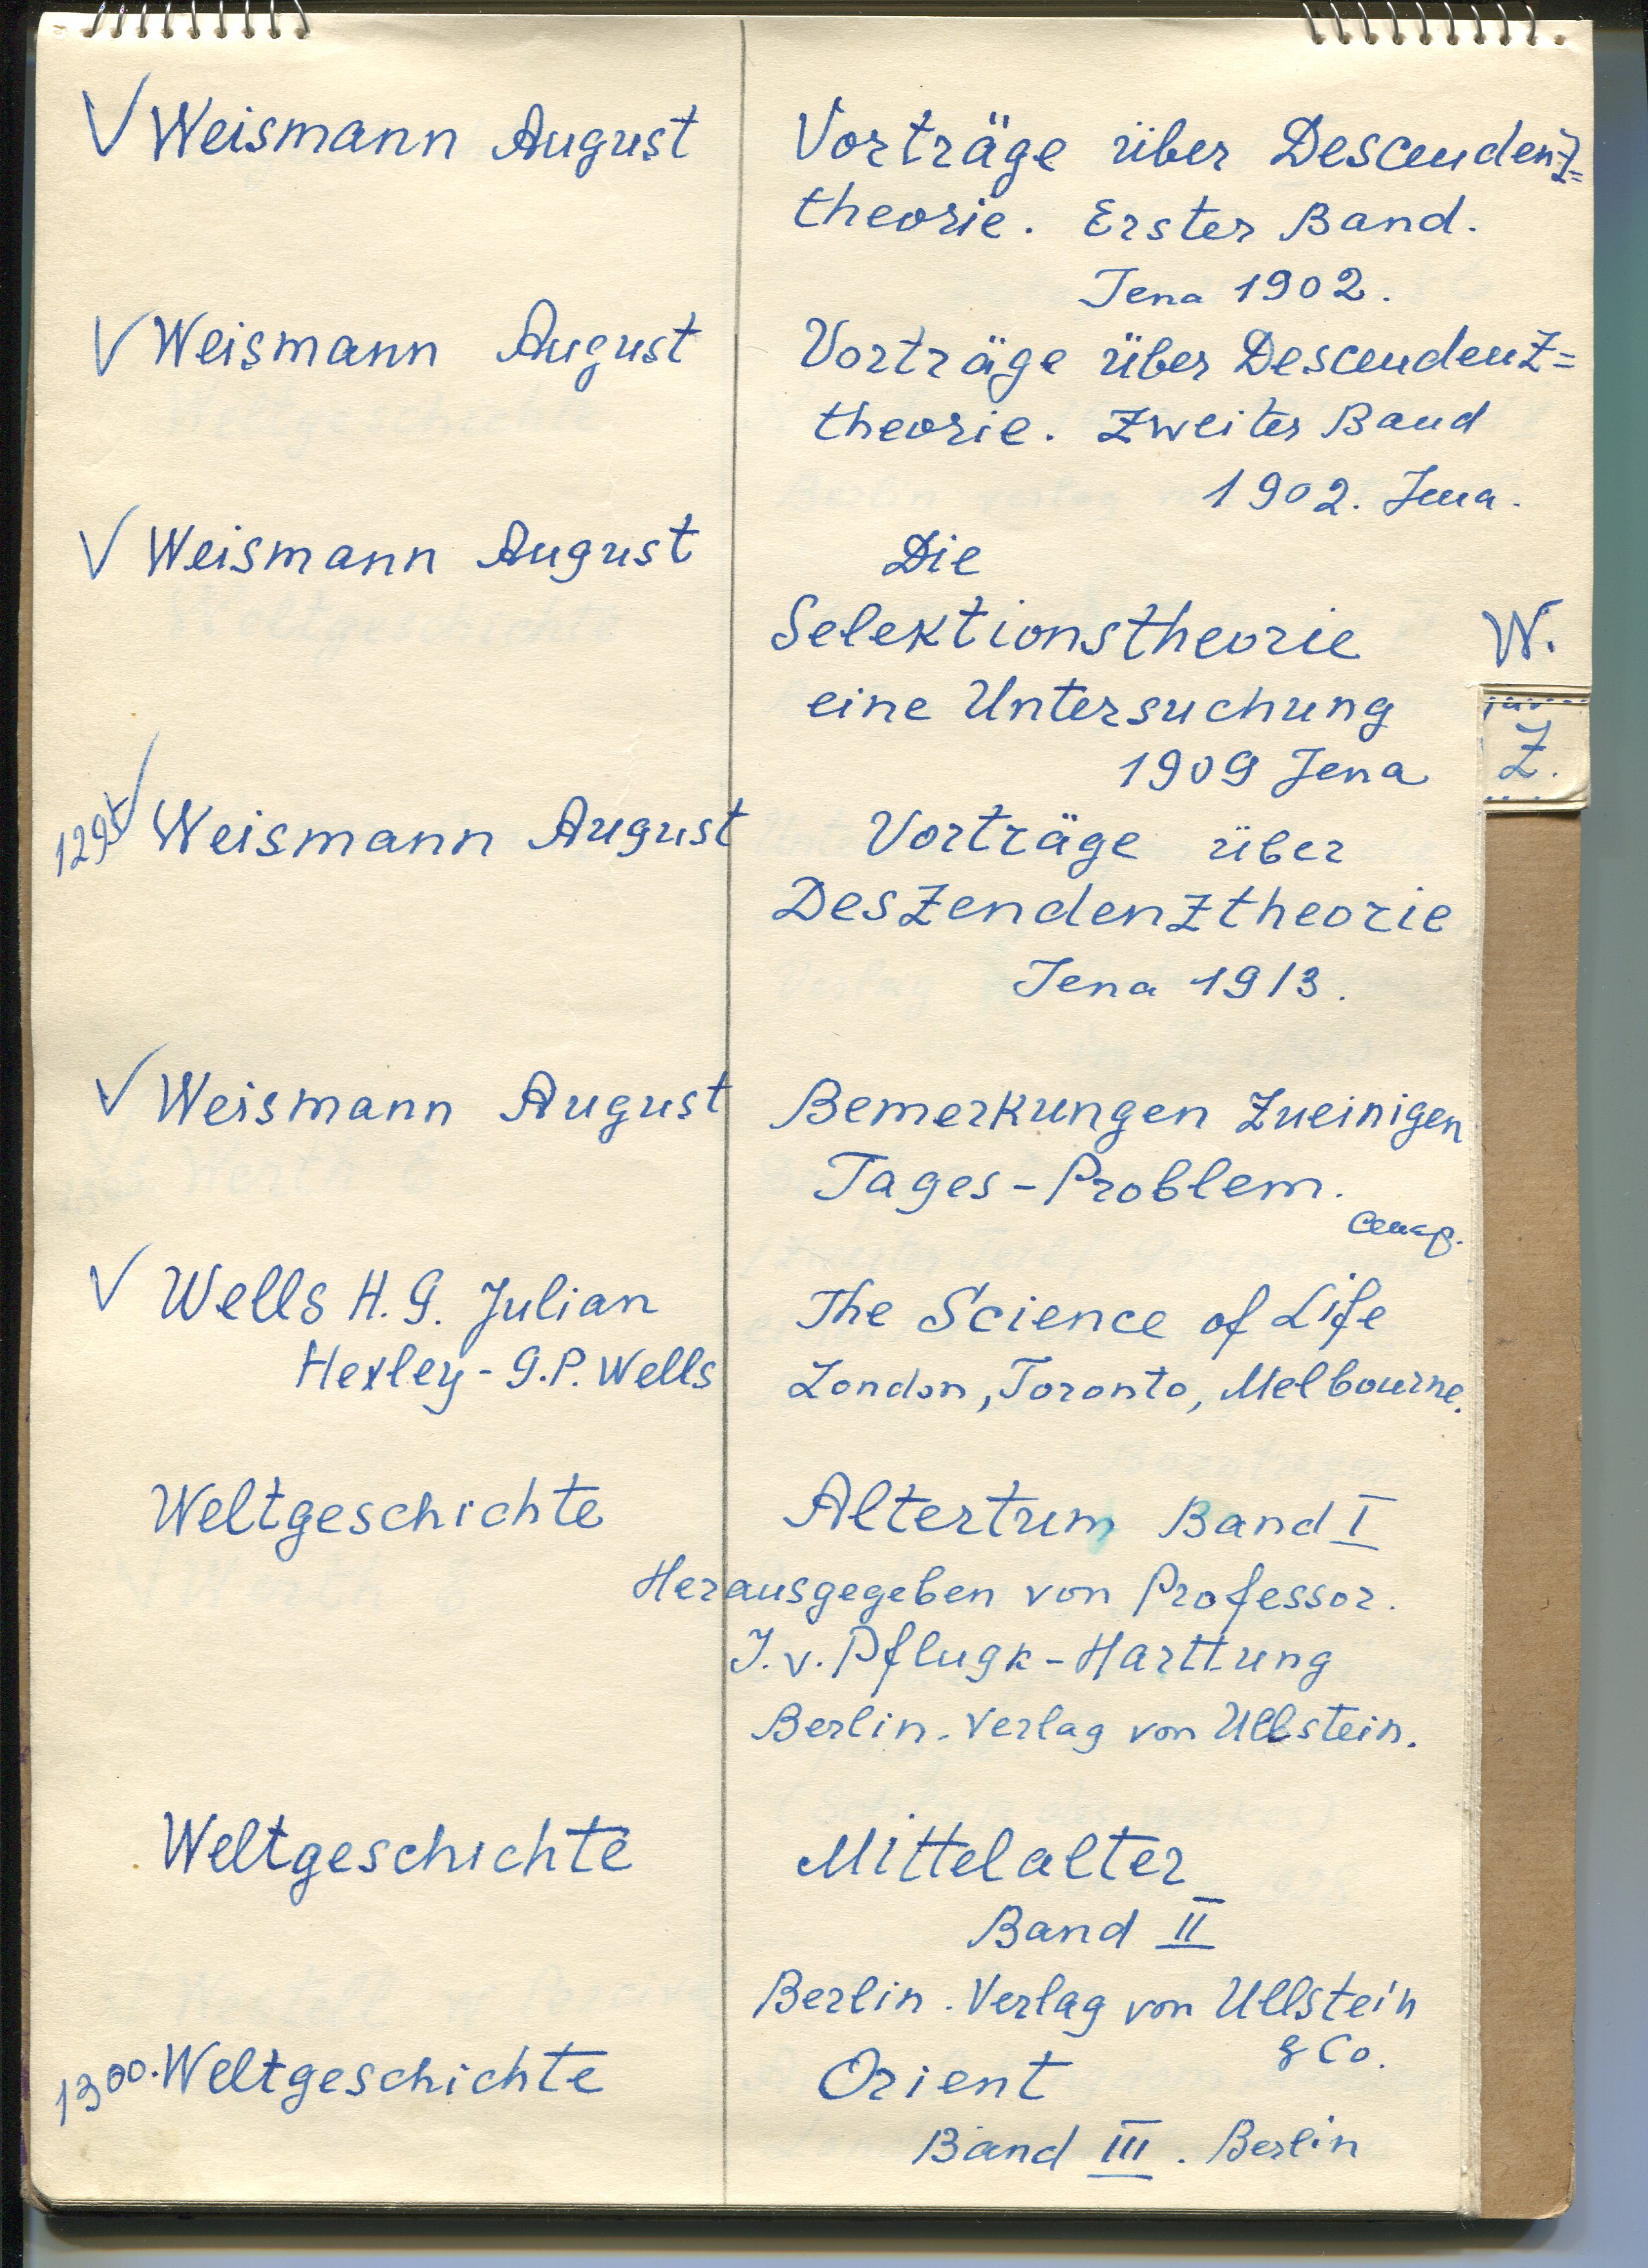 Weismann August
Vorträge über Descendenz=
theorie. Erster Band.
Jena 1902.
Weismann August
Vorträge über Descendenz=
theorie. Zweiter Band
1902. Jena.
Weismann August
Die
Selektionstheorie
eine Untersuchung
1909 Jena
W.
Z.
1295 Weismann August
Vorträge über
Deszendenztheorie
Jena 1913.
Weismann August
Bemerkungen Zueinigen
Tages-Problem.
Wells H. G. Julian
Hexley - G.P. Wells
The Science of Life
London, Toronto, Melbourne.
Weltgeschichte
Altertum Band I
Herausgegeben von Professor.
J. v. Pflugk-Harttung
Berlin. Verlag von Ullstein.
Weltgeschichte
Mittelalter
Band II
Berlin. Verlag von Ullstein
& Co.
1300. Weltgeschichte
Orient
Band III. Berlin